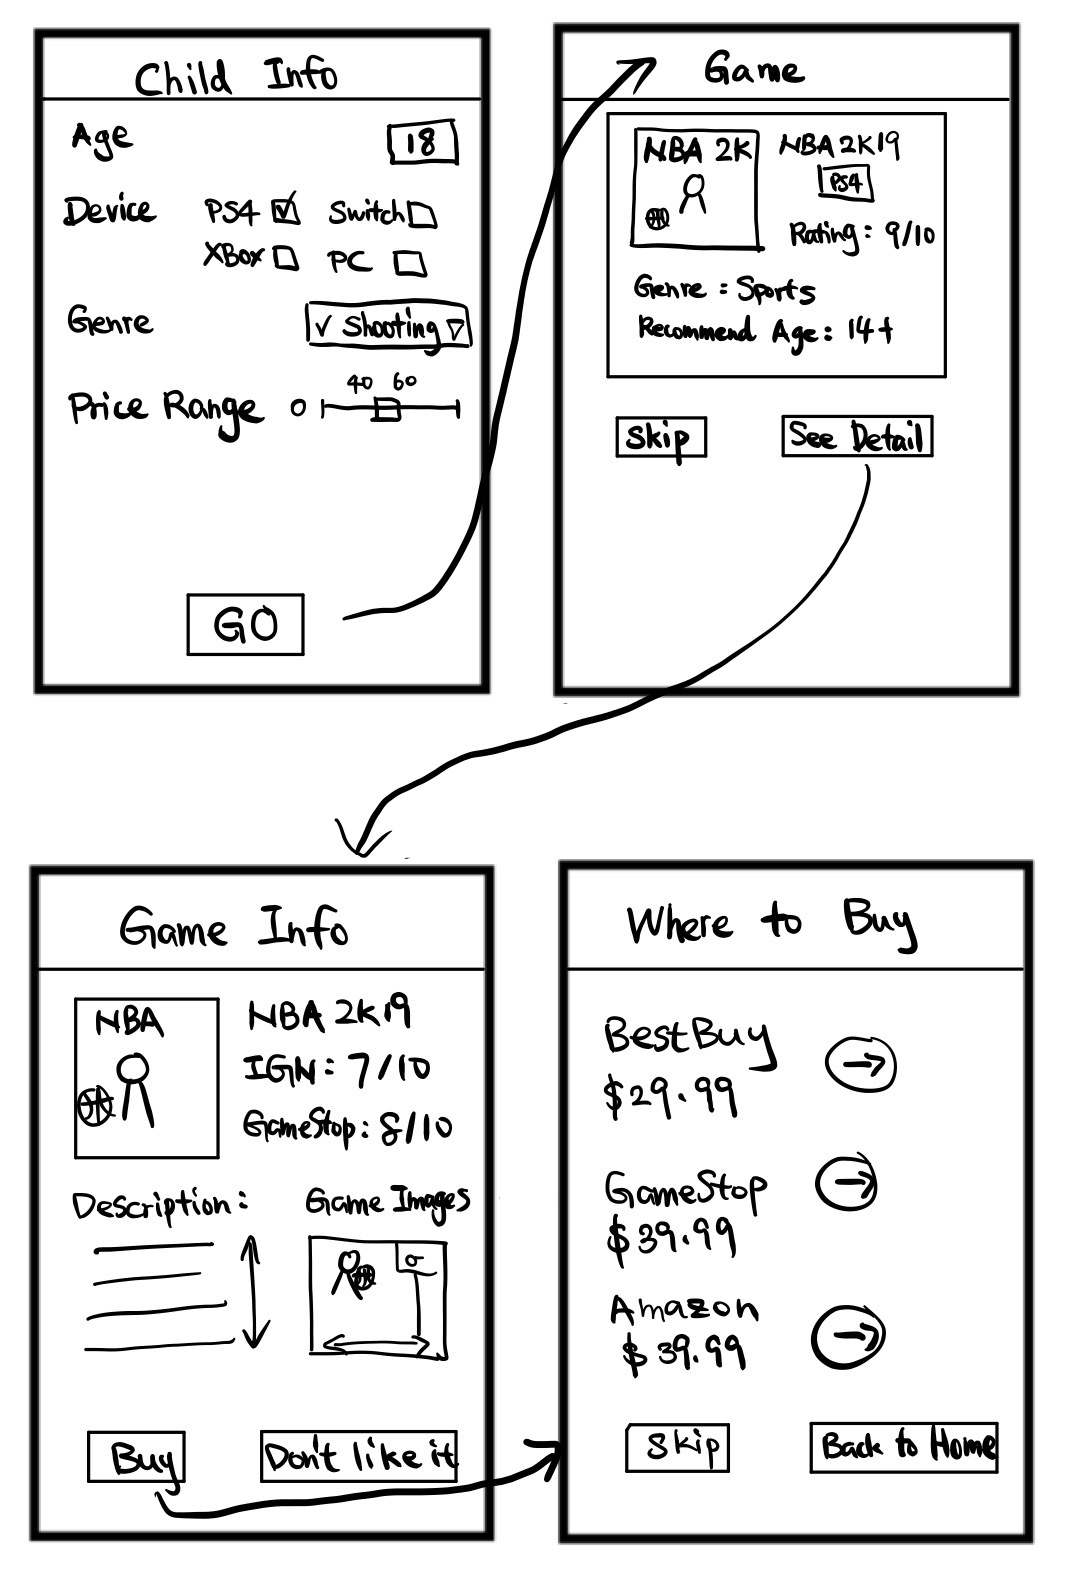 Child Info
Age 18
Device PS4 Switch
XBox PC
Genre ✓ Shooting
40 60
Price Range 0
GO
Game
NBA 2K NBA 2K19
PS4
Rating: 9/10
Genre : Sports
Recommend Age: 14+
Skip See Detail
Game Info
NBA NBA 2K19
IGN: 7/10
GameStop: 8/10
Description: Game Images
Buy Don't like it
Where to Buy
BestBuy
$29.99
GameStop
$39.99
Amazon
$39.99
Skip Back to Home